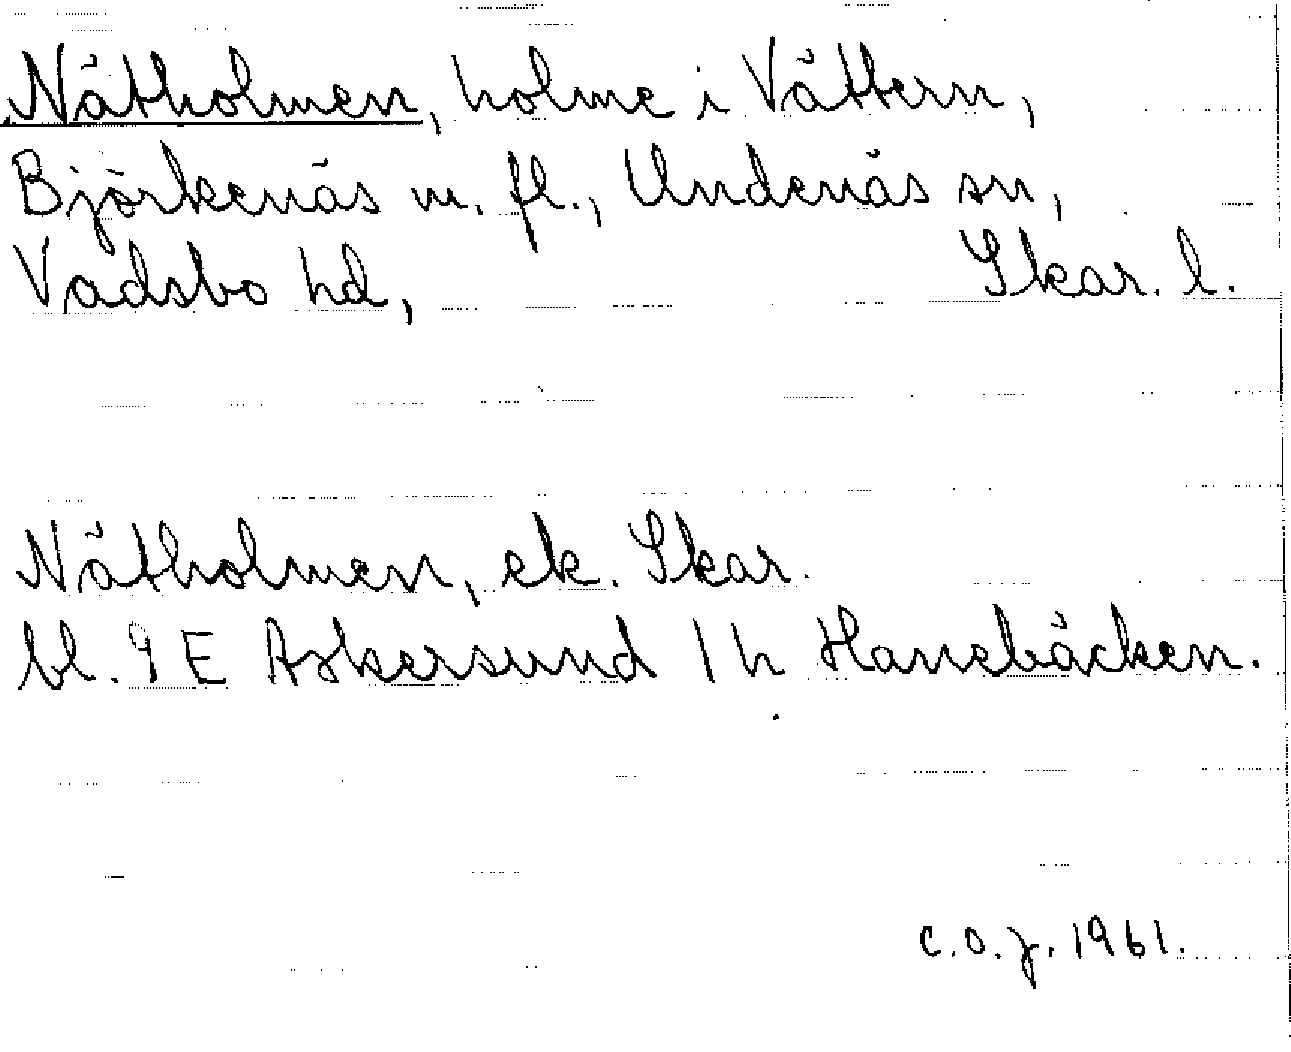 Nätholmen, holme i Vättern,
Björkenäs m. fl., Undenäs sn,
Vadsbo hd, Skar. l.
Nätholmen, ek. Skar.
bl. 9 E Askersund 1 h Hanebäcken.
c.o.j. 1961.